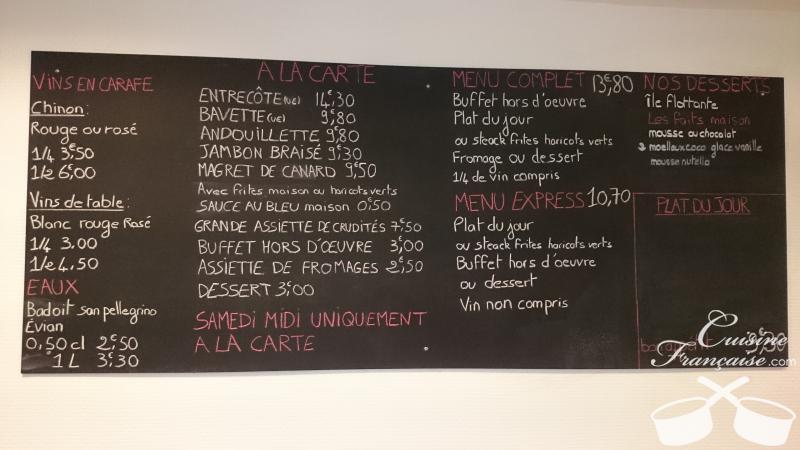 VINS EN CARAFE
Chinon:
Rouge ou rosé
1/4 3€50
1/2 6€00
Vins de table:
Blanc rouge Rosé
1/4 3,00
1/2 4,50
EAUX
Badoit san pellegrino
Évian
0,50cl 2€50
1L 3€30
A LA CARTE
ENTRECÔTE (UE) 14€30
BAVETTE (UE) 9€80
ANDOUILLETTE 9€80
JAMBON BRAISÉ 9€30
MAGRET DE CANARD 9€50
Avec frites maison ou haricots verts
SAUCE AU BLEU maison 0€50
GRANDE ASSIETTE DE CRUDITÉS 7€50
BUFFET HORS D'ŒUVRE 3€00
ASSIETTE DE FROMAGES 2€50
DESSERT 3€00
SAMEDI MIDI UNIQUEMENT
A LA CARTE
MENU COMPLET 13€80
Buffet hors d'oeuvre
Plat du jour
ou steack frites haricots verts
Fromage ou dessert
1/4 de vin compris
MENU EXPRESS 10,70
Plat du jour
ou steack frites haricots verts
Buffet hors d'oeuvre
ou dessert
Vin non compris
NOS DESSERTS
Île flottante
Les faits maison
mousse au chocolat
moelleux coco glace vanille
mousse nutella
PLAT DU JOUR
Cuisine
Française.com